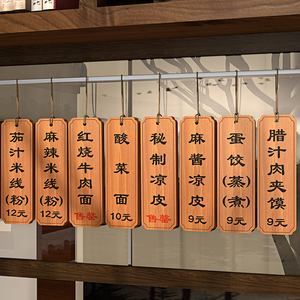 茄汁米线(粉)
12元
麻辣米线(粉)
12元
红烧牛肉面
售罄
酸菜面
10元
秘制凉皮
售罄
麻酱凉皮
9元
蛋饺(蒸)(煮)
9元
腊汁肉夹馍
9元